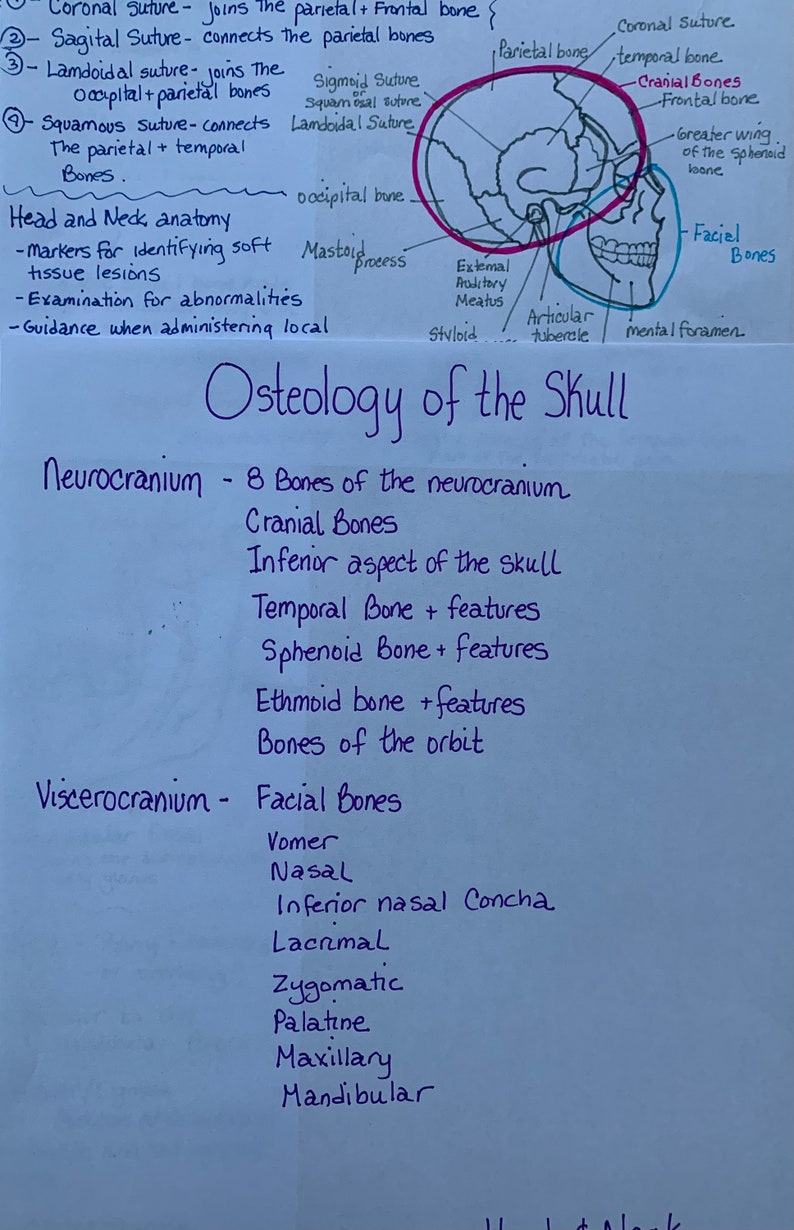 ① - Coronal suture - joins the parietal + Frontal bone
② - Sagital Suture - connects the parietal bones
③ - Lamdoidal suture - joins the
occipital + parietal bones
④ - Squamous suture - connects
The parietal + temporal
Bones.
Head and Neck anatomy
- Markers for identifying soft
tissue lesions
- Examination for abnormalities
- Guidance when administering local
Coronal Suture
Parietal bone
temporal bone
Cranial Bones
Frontal bone
Sigmoid Suture
or
Squamosal suture
Lamdoidal Suture
Greater wing
of the sphenoid
bone
occipital bone
Facial
Bones
Mastoid
process
External
Auditory
Meatus
Styloid
Articular
tubercle
mental foramen
Osteology of the Skull
Neurocranium - 8 Bones of the neurocranium
Cranial Bones
Inferior aspect of the skull
Temporal Bone + features
Sphenoid Bone + features
Ethmoid bone + features
Bones of the orbit
Viscerocranium - Facial Bones
Vomer
Nasal
Inferior nasal Concha
Lacrimal
Zygomatic
Palatine
Maxillary
Mandibular